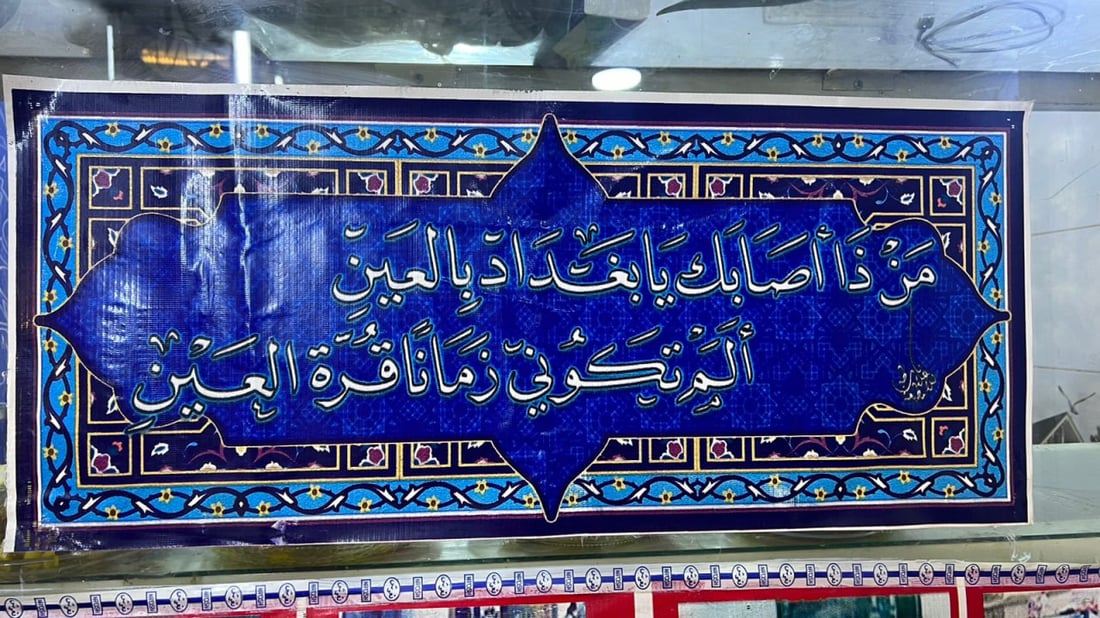 مَنْ ذَا أَصَابَكِ يَا بَغْدَادَ بِالعَيْنِ
أَلَمْ تَكُونِيّ زَمَانًا قُرَّةَ العَيْنِ